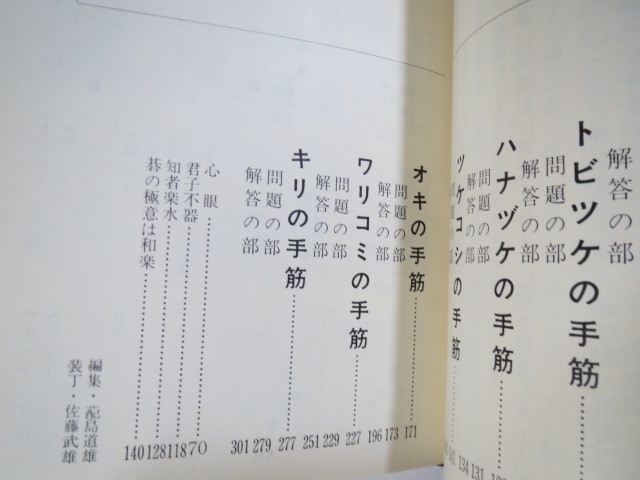 解答の部
トビツケの手筋
問題の部
解答の部
ハナヅケの手筋
問題の部 131
解答の部 134
ツケコシの手筋
オキの手筋 171
問題の部 173
解答の部 196
ワリコミの手筋 227
問題の部 229
解答の部 251
キリの手筋 277
問題の部 279
解答の部 301
心眼 70
君子不器 118
知者楽水 128
碁の極意は和楽 140
編集・蓜島道雄
装丁・佐藤武雄